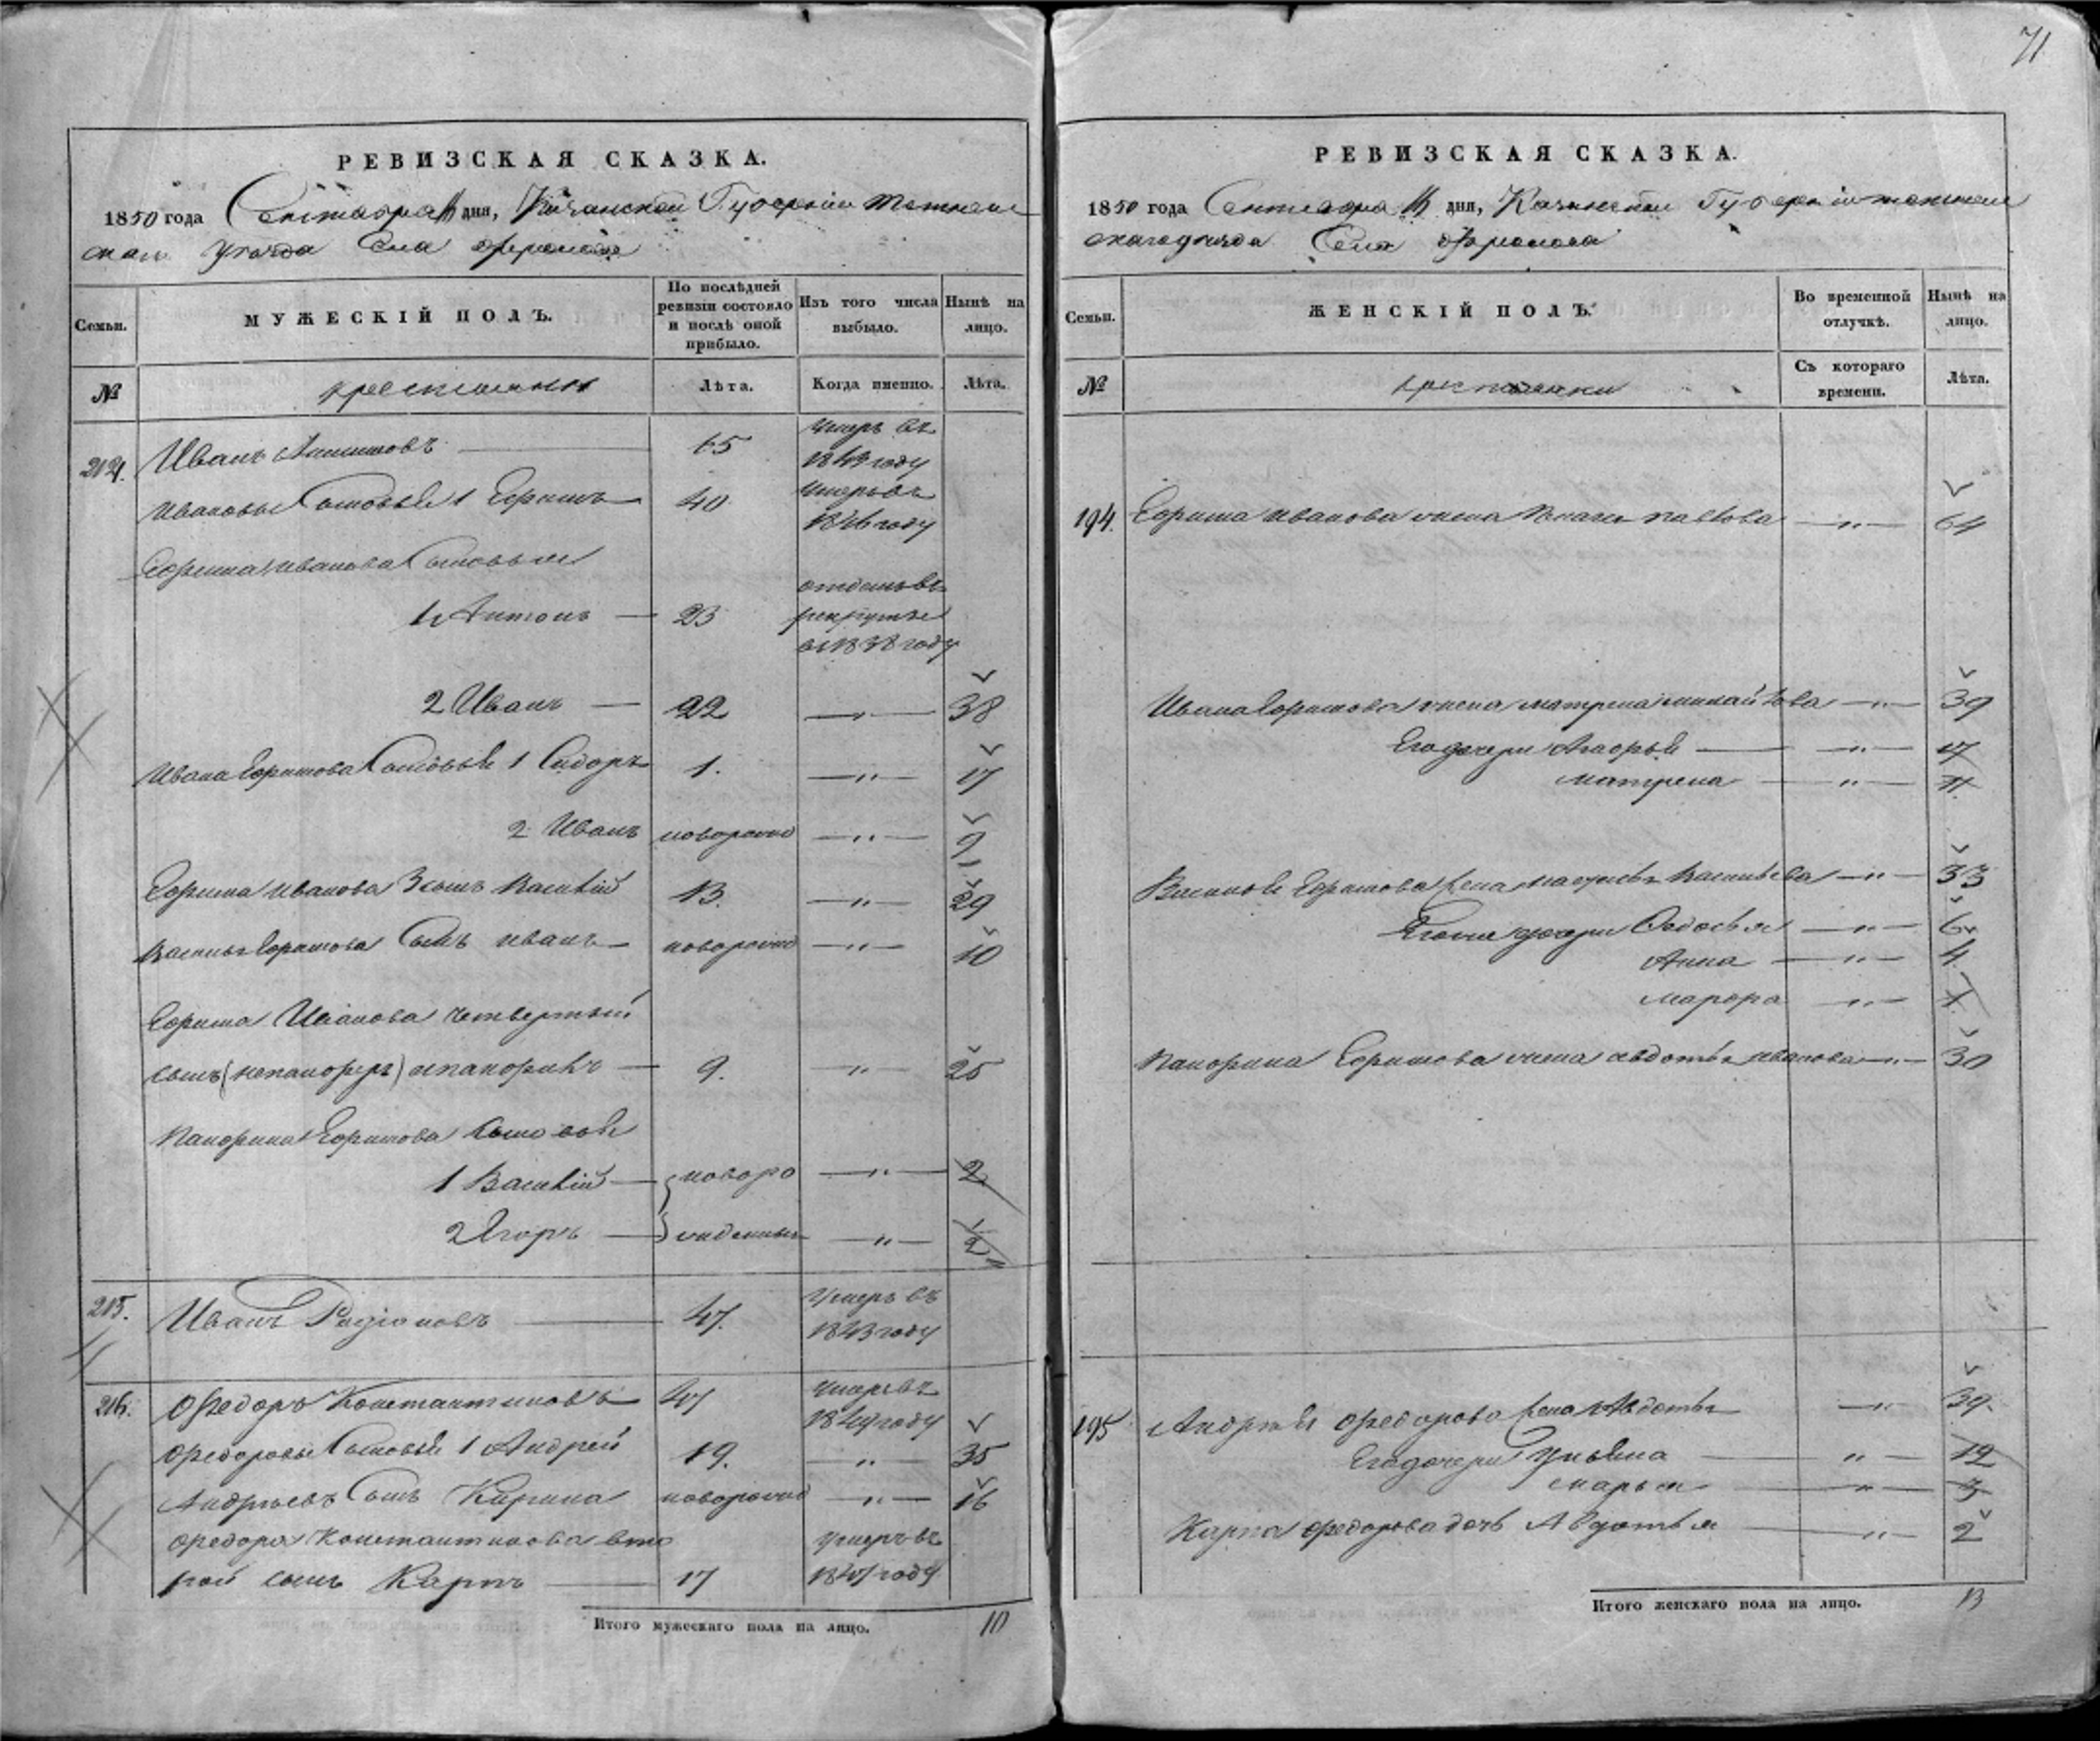 71
РЕВИЗСКАЯ СКАЗКА.
1850 года Сентября дня, Казанской Губернии
Уѣзда Села
Семьи.
МУЖЕСКІЙ ПОЛЪ.
По послѣдней ревизіи состояло и послѣ оной прибыло.
Изъ того числа выбыло.
Нынѣ на лицо.
№
крестьяне
Лѣта.
Когда именно.
Лѣта.
214. Иванъ 65 умеръ въ 1843 году
Ивановы Сыновья 1 Ефимъ 40 умеръ въ 1846 году
Ефима Иванова Сыновья
1 Антонъ 23 отданъ въ рекруты въ 1838 году
2 Иванъ 22 —"— 38
Ивана Ефимова Сыновья 1 Сидоръ 1. —"— 17
2 Иванъ новорожд —"— 9
Ефима Иванова 3 сынъ Василій 13. —"— 29
Василья Ефимова Сынъ Иванъ новорожд —"— 10
Ефима Иванова четвертый
сынъ 9. —"— 25
Ефимова Сыновья
1 Василій новоро —"— 2
2 Егоръ жденные —"— 1/2
215. Иванъ Родіоновъ 47. Умеръ въ 1843 году
216. Федоръ Константиновъ 47 умеръ въ 1849 году
Федоровы Сыновья 1 Андрей 19. —"— 35
Андреевъ Сынъ новорожд —"— 16
Федора Константинова вто
рой сынъ Карпъ 17 Умеръ въ 1847 году
Итого мужескаго пола на лицо. 10
РЕВИЗСКАЯ СКАЗКА.
1850 года Сентября дня, Казанской Губерніи
Села
Семьи.
ЖЕНСКІЙ ПОЛЪ.
Во временной отлучкѣ.
Нынѣ на лицо.
№
крестьянки
Съ котораго времени.
Лѣта.
194. Ефима Иванова жена Павлова —"— 64
Ивана Ефимова жена Матрена Михайлова —"— 39
Его дочери —"— 17
Матрена —"— 11
Василья Ефимова жена Васильева —"— 33
Его же дочери Федосья —"— 6
Анна —"— 4
Марфа —"— 1
Ефимова жена Авдотья Иванова —"— 30
195 Андрея Федорова жена Авдотья —"— 39
Его дочери Ульяна —"— 12
Марья —"— 3
Карпа Федорова дочь Авдотья —"— 2
Итого женскаго пола на лицо. 13